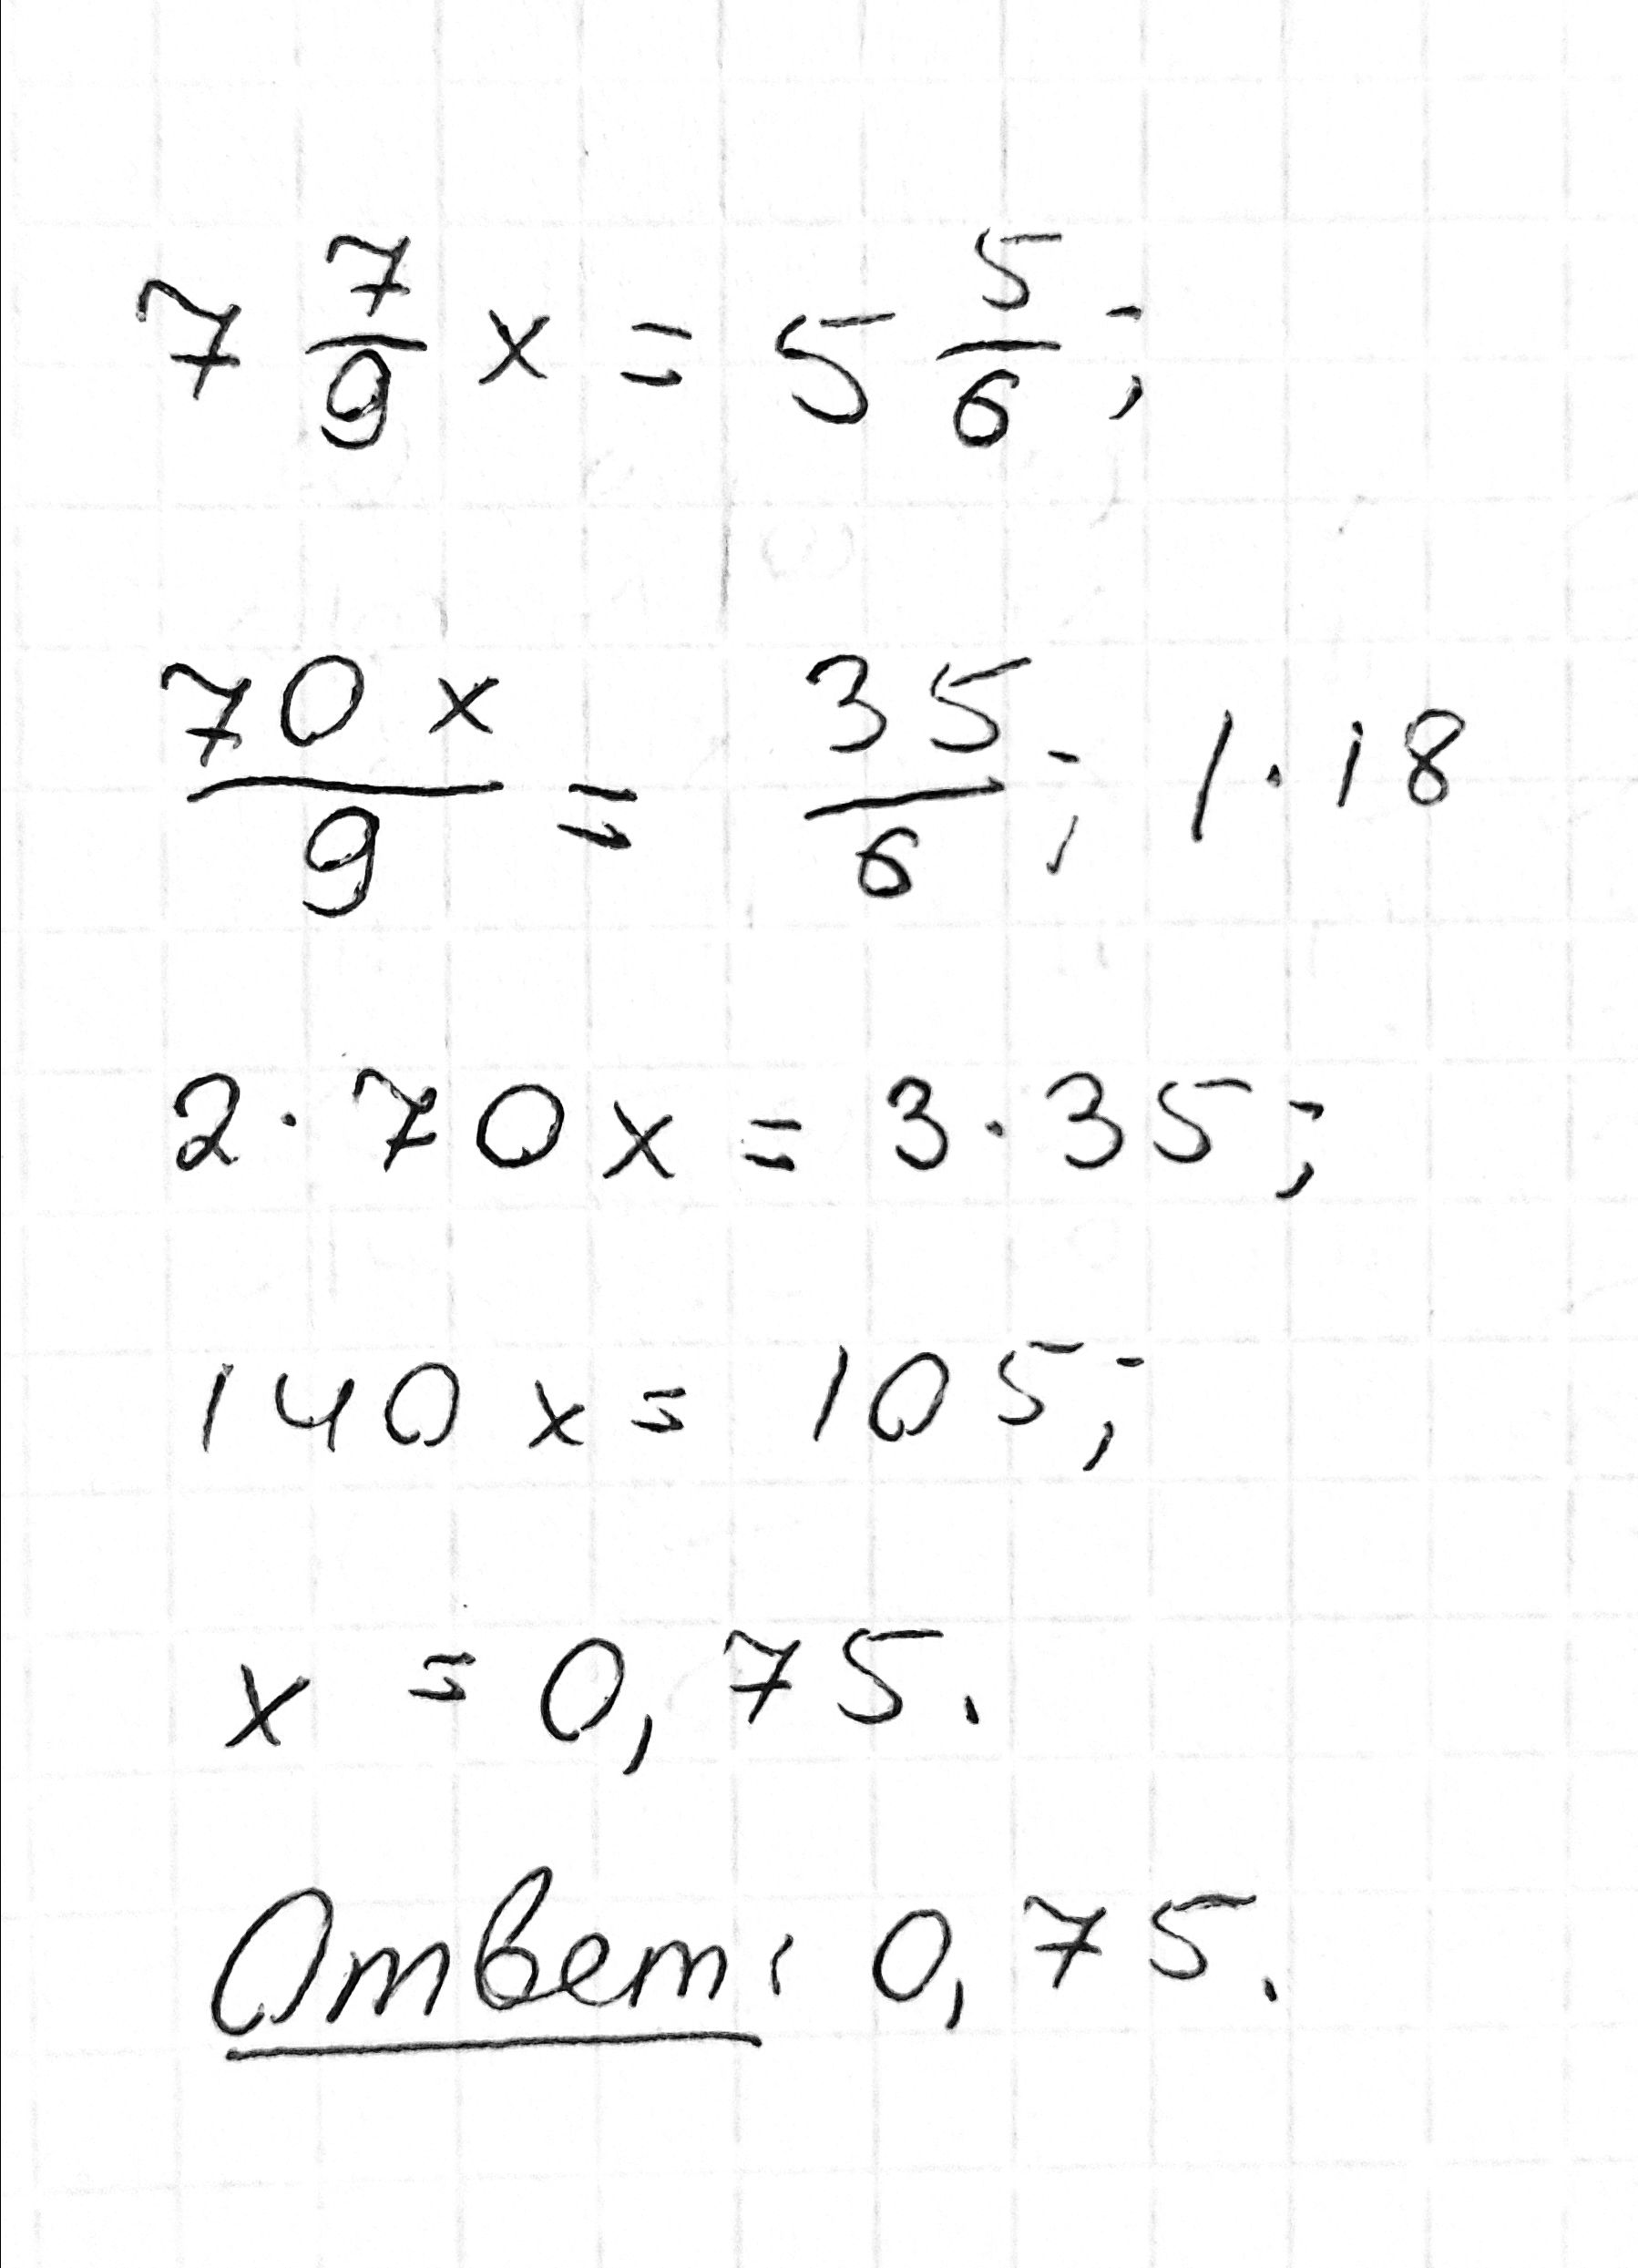 7 7/9 x = 5 5/6;
70x/9 = 35/6; | · 18
2 · 70x = 3 · 35;
140x = 105;
x = 0,75.
Ответ: 0,75.